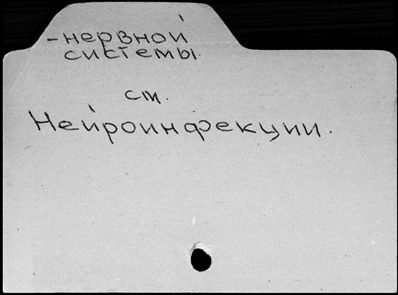 - нервной
системы.
см.
Нейроинфекции.